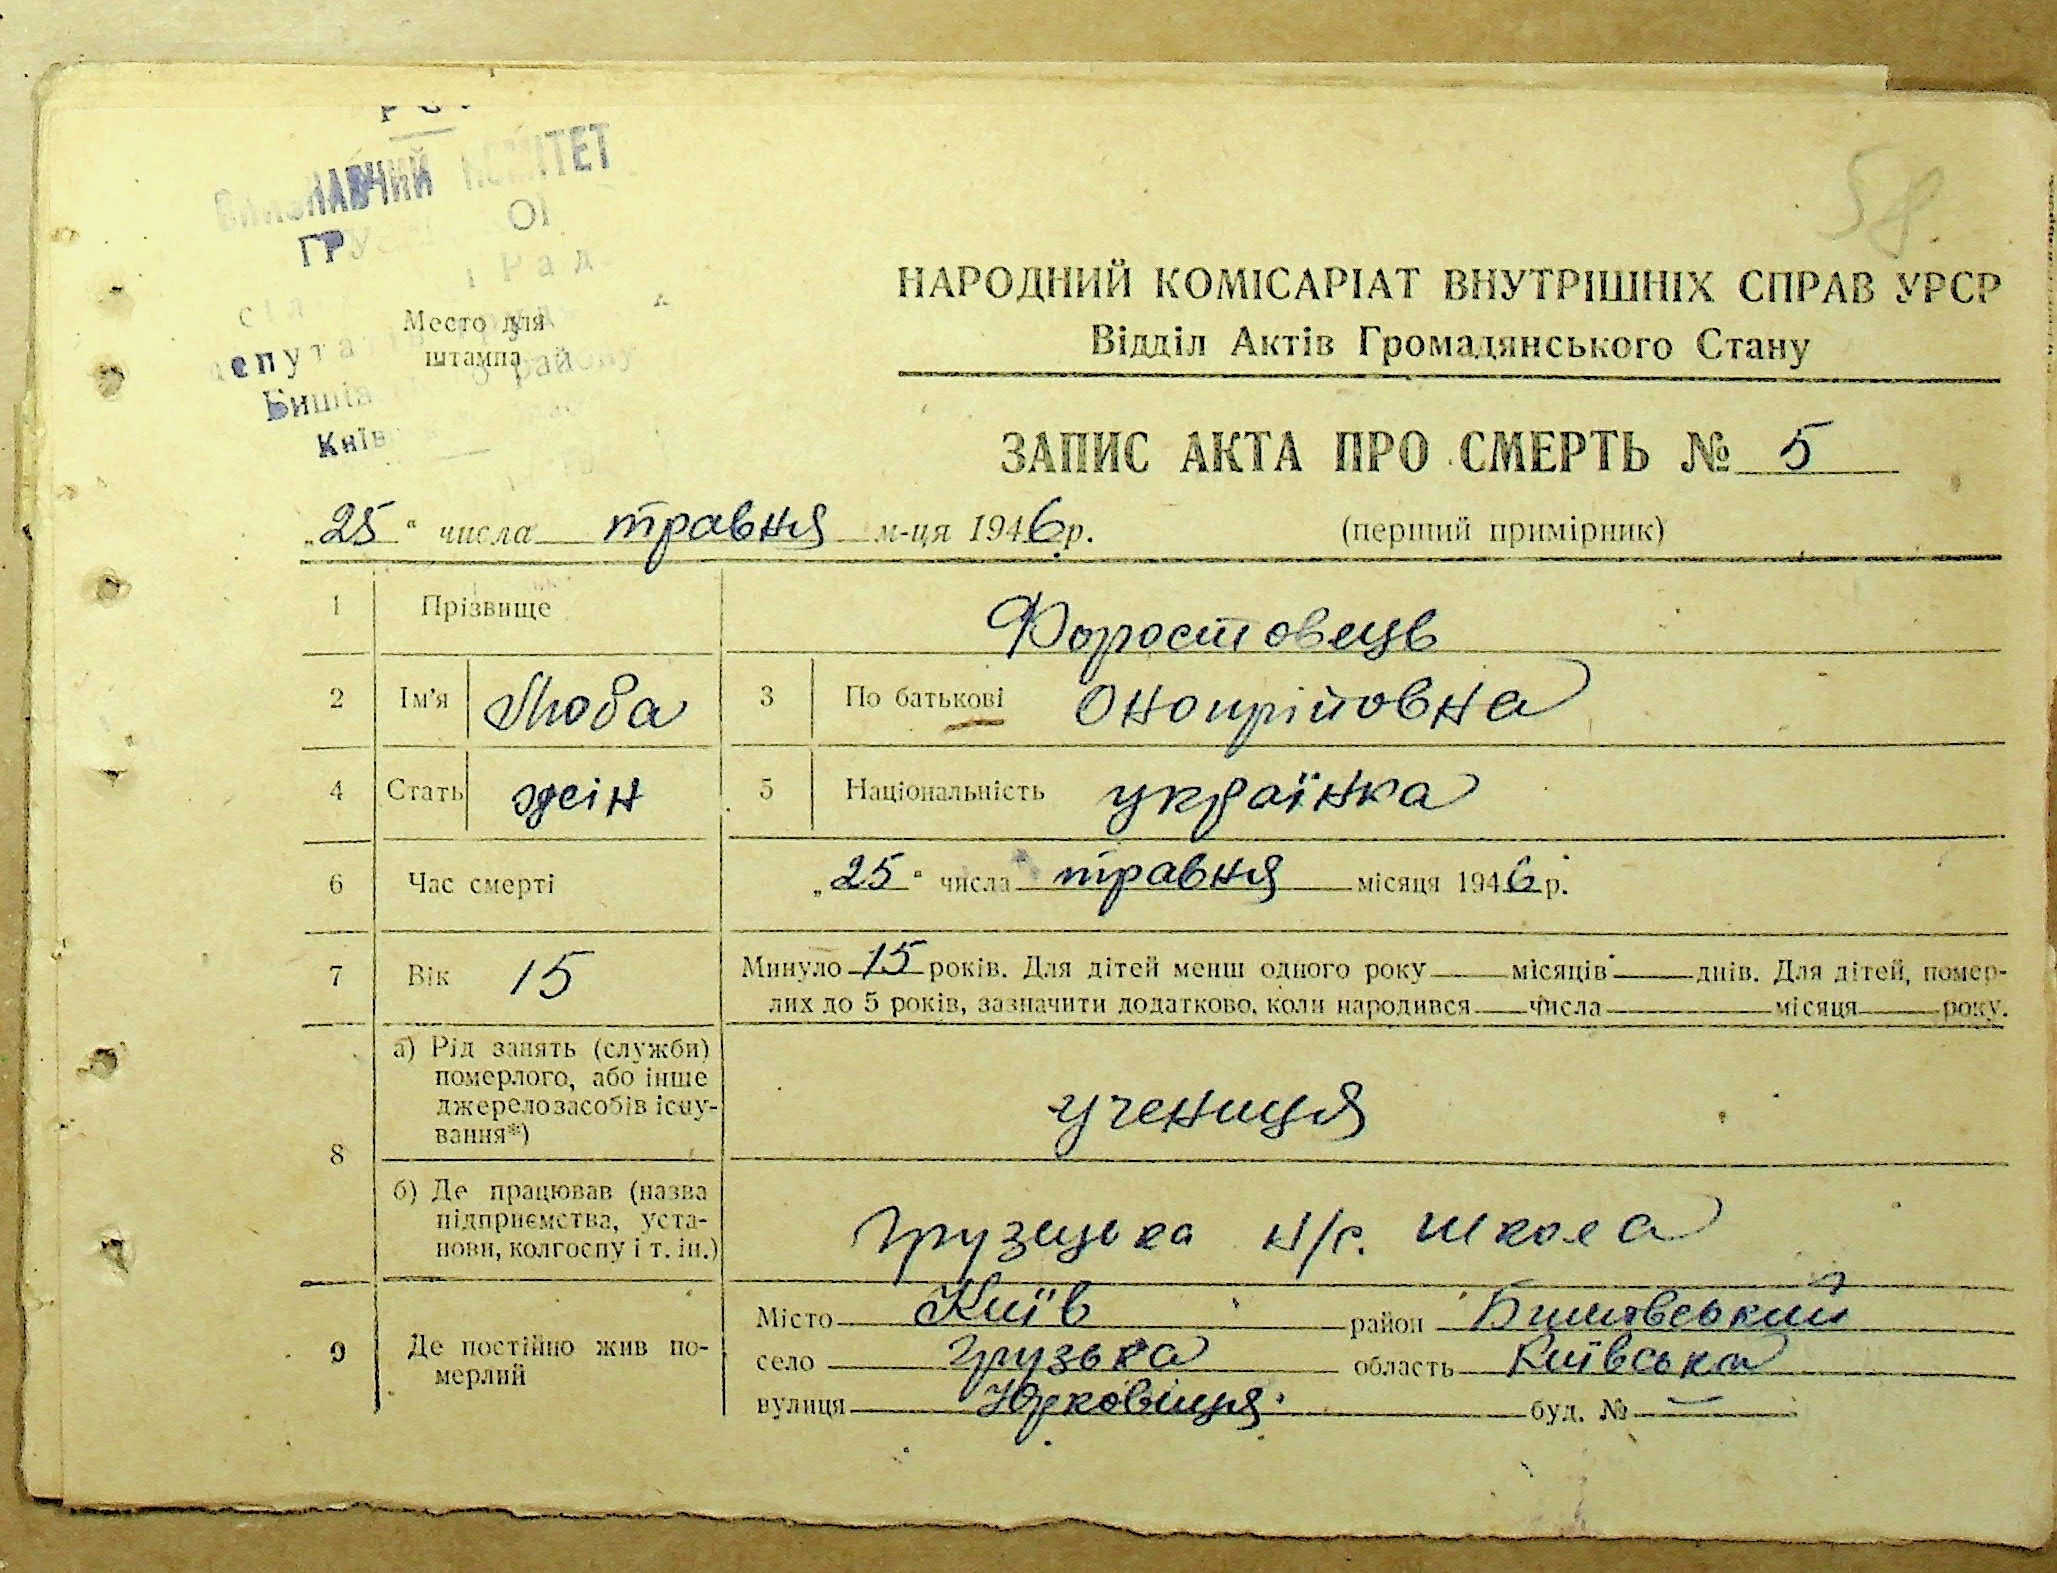 58
ВИКОНАВЧИЙ КОМІТЕТ
Место для
штампа
НАРОДНИЙ КОМІСАРІАТ ВНУТРІШНІХ СПРАВ УРСР
Відділ Актів Громадянського Стану
ЗАПИС АКТА ПРО СМЕРТЬ № 5
„25“ числа травня м-ця 1946 р.
(перший примірник)
1 Прізвище Форостовець
2 Ім'я Люба 3 По батькові Онопрійовна
4 Стать жін 5 Національність українка
6 Час смерті „25“ числа травня місяця 1946 р.
7 Вік 15 Минуло 15 років. Для дітей менш одного року місяців днів. Для дітей, помер-
лих до 5 років, зазначити додатково, коли народився числа місяця року.
8 а) Рід занять (служби)
померлого, або інше
джерело засобів існу-
вання*)
учениця
б) Де працював (назва
підприємства, уста-
нови, колгоспу і т. ін.)
Грузецька н/с. школа
9 Де постійно жив по-
мерлий
Місто Київ район Бишовський
село Грузька область Київська
вулиця Юрковиця буд. № —